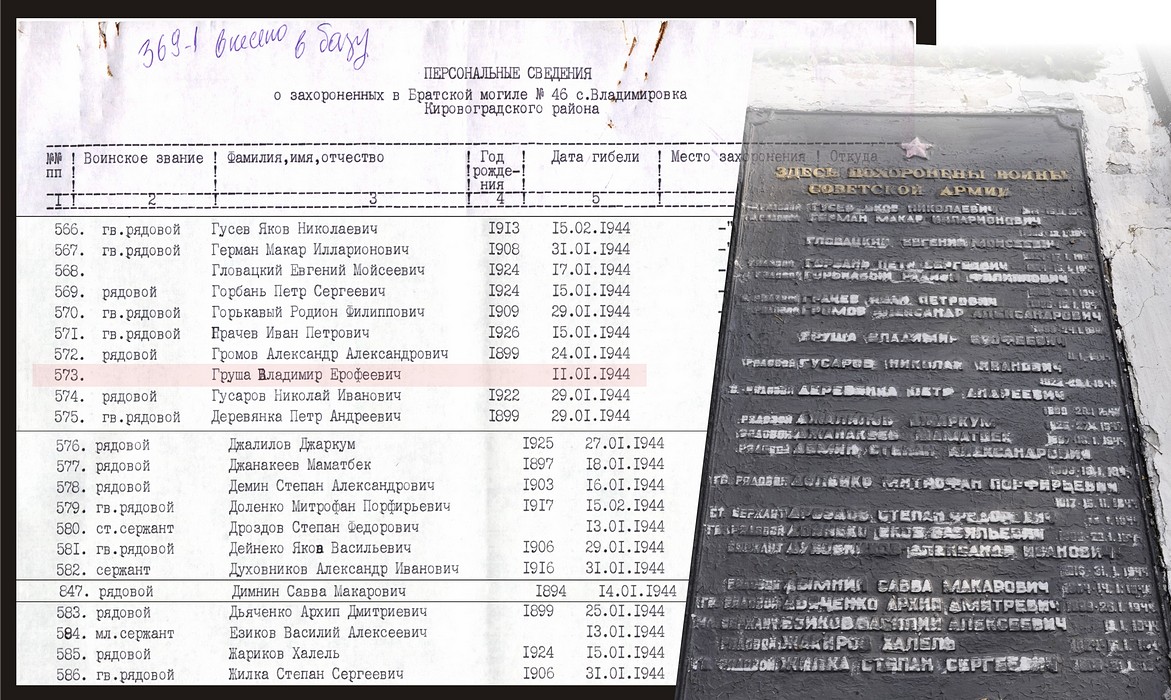 369-1 внесено в базу
ПЕРСОНАЛЬНЫЕ СВЕДЕНИЯ
о захороненных в Братской могиле № 46 с.Владимировка
Кировоградского района
№№ пп ! Воинское звание ! Фамилия,имя,отчество ! Год рожде-ния ! Дата гибели ! Место захоронения ! Откуда
1 ! 2 ! 3 ! 4 ! 5
566. гв.рядовой Гусев Яков Николаевич I9I3 I5.02.I944 -"
567. гв.рядовой Герман Макар Илларионович I908 3I.0I.I944 -
568. Гловацкий Евгений Мойсеевич I924 I7.0I.I944 -
569. рядовой Горбань Петр Сергеевич I924 I5.0I.I944 -"
570. гв.рядовой Горькавый Родион Филиппович I909 29.0I.I944 -
57I. гв.рядовой Грачев Иван Петрович I926 I5.0I.I944
572. рядовой Громов Александр Александрович I899 24.0I.I944
573. Груша Владимир Ерофеевич II.0I.I944
574. рядовой Гусаров Николай Иванович I922 29.0I.I944
575. гв.рядовой Деревянка Петр Андреевич I899 29.0I.I944
576. рядовой Джалилов Джаркум I925 27.0I.I944
577. рядовой Джанакеев Маматбек I897 I8.0I.I944
578. рядовой Демин Степан Александрович I903 I6.0I.I944
579. гв.рядовой Доленко Митрофан Порфирьевич I9I7 I5.02.I944
580. ст.сержант Дроздов Степан Федорович I3.0I.I944
58I. гв.рядовой Дейнеко Яков Васильевич I906 29.0I.I944
582. сержант Духовников Александр Иванович I9I6 3I.0I.I944
847. рядовой Димнин Савва Макарович I894 I4.0I.I944
583. рядовой Дьяченко Архип Дмитриевич I899 25.0I.I944
584. мл.сержант Езиков Василий Алексеевич I3.0I.I944
585. рядовой Жариков Халель I924 I5.0I.I944
586. гв.рядовой Жилка Степан Сергеевич I906 3I.0I.I944
ЗДЕСЬ ПОХОРОНЕНЫ ВОИНЫ
СОВЕТСКОЙ АРМИИ
НИКОЛАЕВИЧ
ГЕРМАН МАКАР ИЛАРИОНОВИЧ
ГЛОВАЦКИЙ ЕВГЕНИЙ МОИСЕЕВИЧ
ГОРБАНЬ ПЕТР СЕРГЕЕВИЧ
ГРАЧЕВ ИВАН ПЕТРОВИЧ
ГРОМОВ АЛЕКСАНДР АЛЕКСАНДРОВИЧ
ГРУША ВЛАДИМИР
ГУСАРОВ НИКОЛАЙ ИВАНОВИЧ
ДЕРЕВЯНКА ПЕТР АНДРЕЕВИЧ
МАМАТБЕК
СТЕПАН АЛЕКСАНДРОВИЧ
МИТРОФАН ПОРФИРЬЕВИЧ
СТЕПАН
ВАСИЛЬЕВИЧ
АЛЕКСАНДР ИВАНОВИЧ
ДЫМНИН САВВА МАКАРОВИЧ
АРХИП ДМИТРЕВИЧ
ЕЗИКОВ ВАСИЛИЙ АЛЕКСЕЕВИЧ
ХАЛЕЛЬ
ЖИЛКА СТЕПАН СЕРГЕЕВИЧ